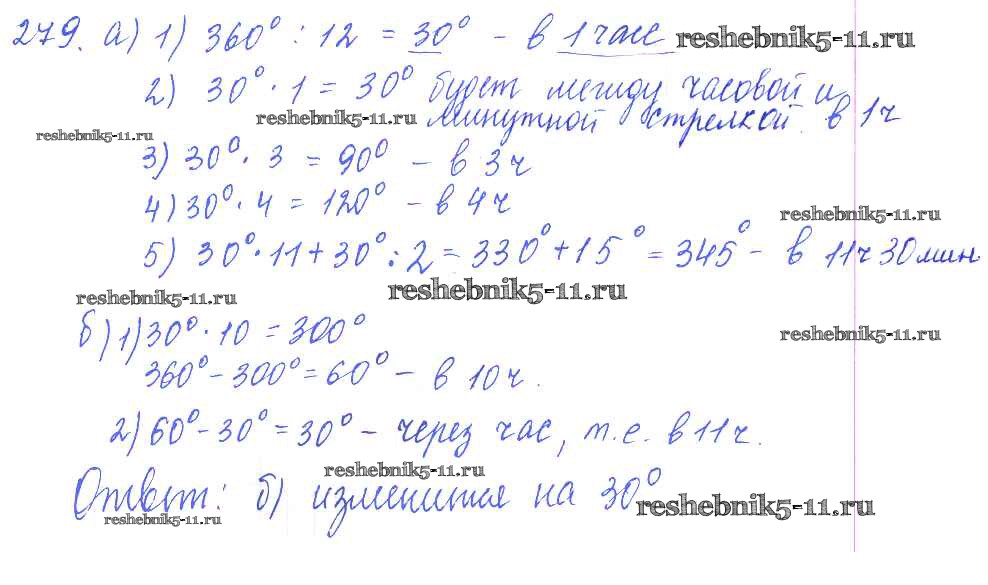 279. а) 1) 360° : 12 = 30° - в 1 час reshebnik5-11.ru
2) 30° · 1 = 30° будет между часовой и
reshebnik5-11.ru минутной стрелкой в 1 ч
reshebnik5-11.ru
3) 30° · 3 = 90° - в 3 ч
4) 30° · 4 = 120° - в 4 ч
reshebnik5-11.ru
5) 30° · 11 + 30° : 2 = 330° + 15° = 345° - в 11ч 30 мин
reshebnik5-11.ru reshebnik5-11.ru
б) 1) 30° · 10 = 300°
reshebnik5-11.ru
360° - 300° = 60° - в 10 ч.
2) 60° - 30° = 30° - через час, т.е. в 11 ч.
reshebnik5-11.ru
Ответ: б) изменится на 30°
reshebnik5-11.ru
reshebnik5-11.ru